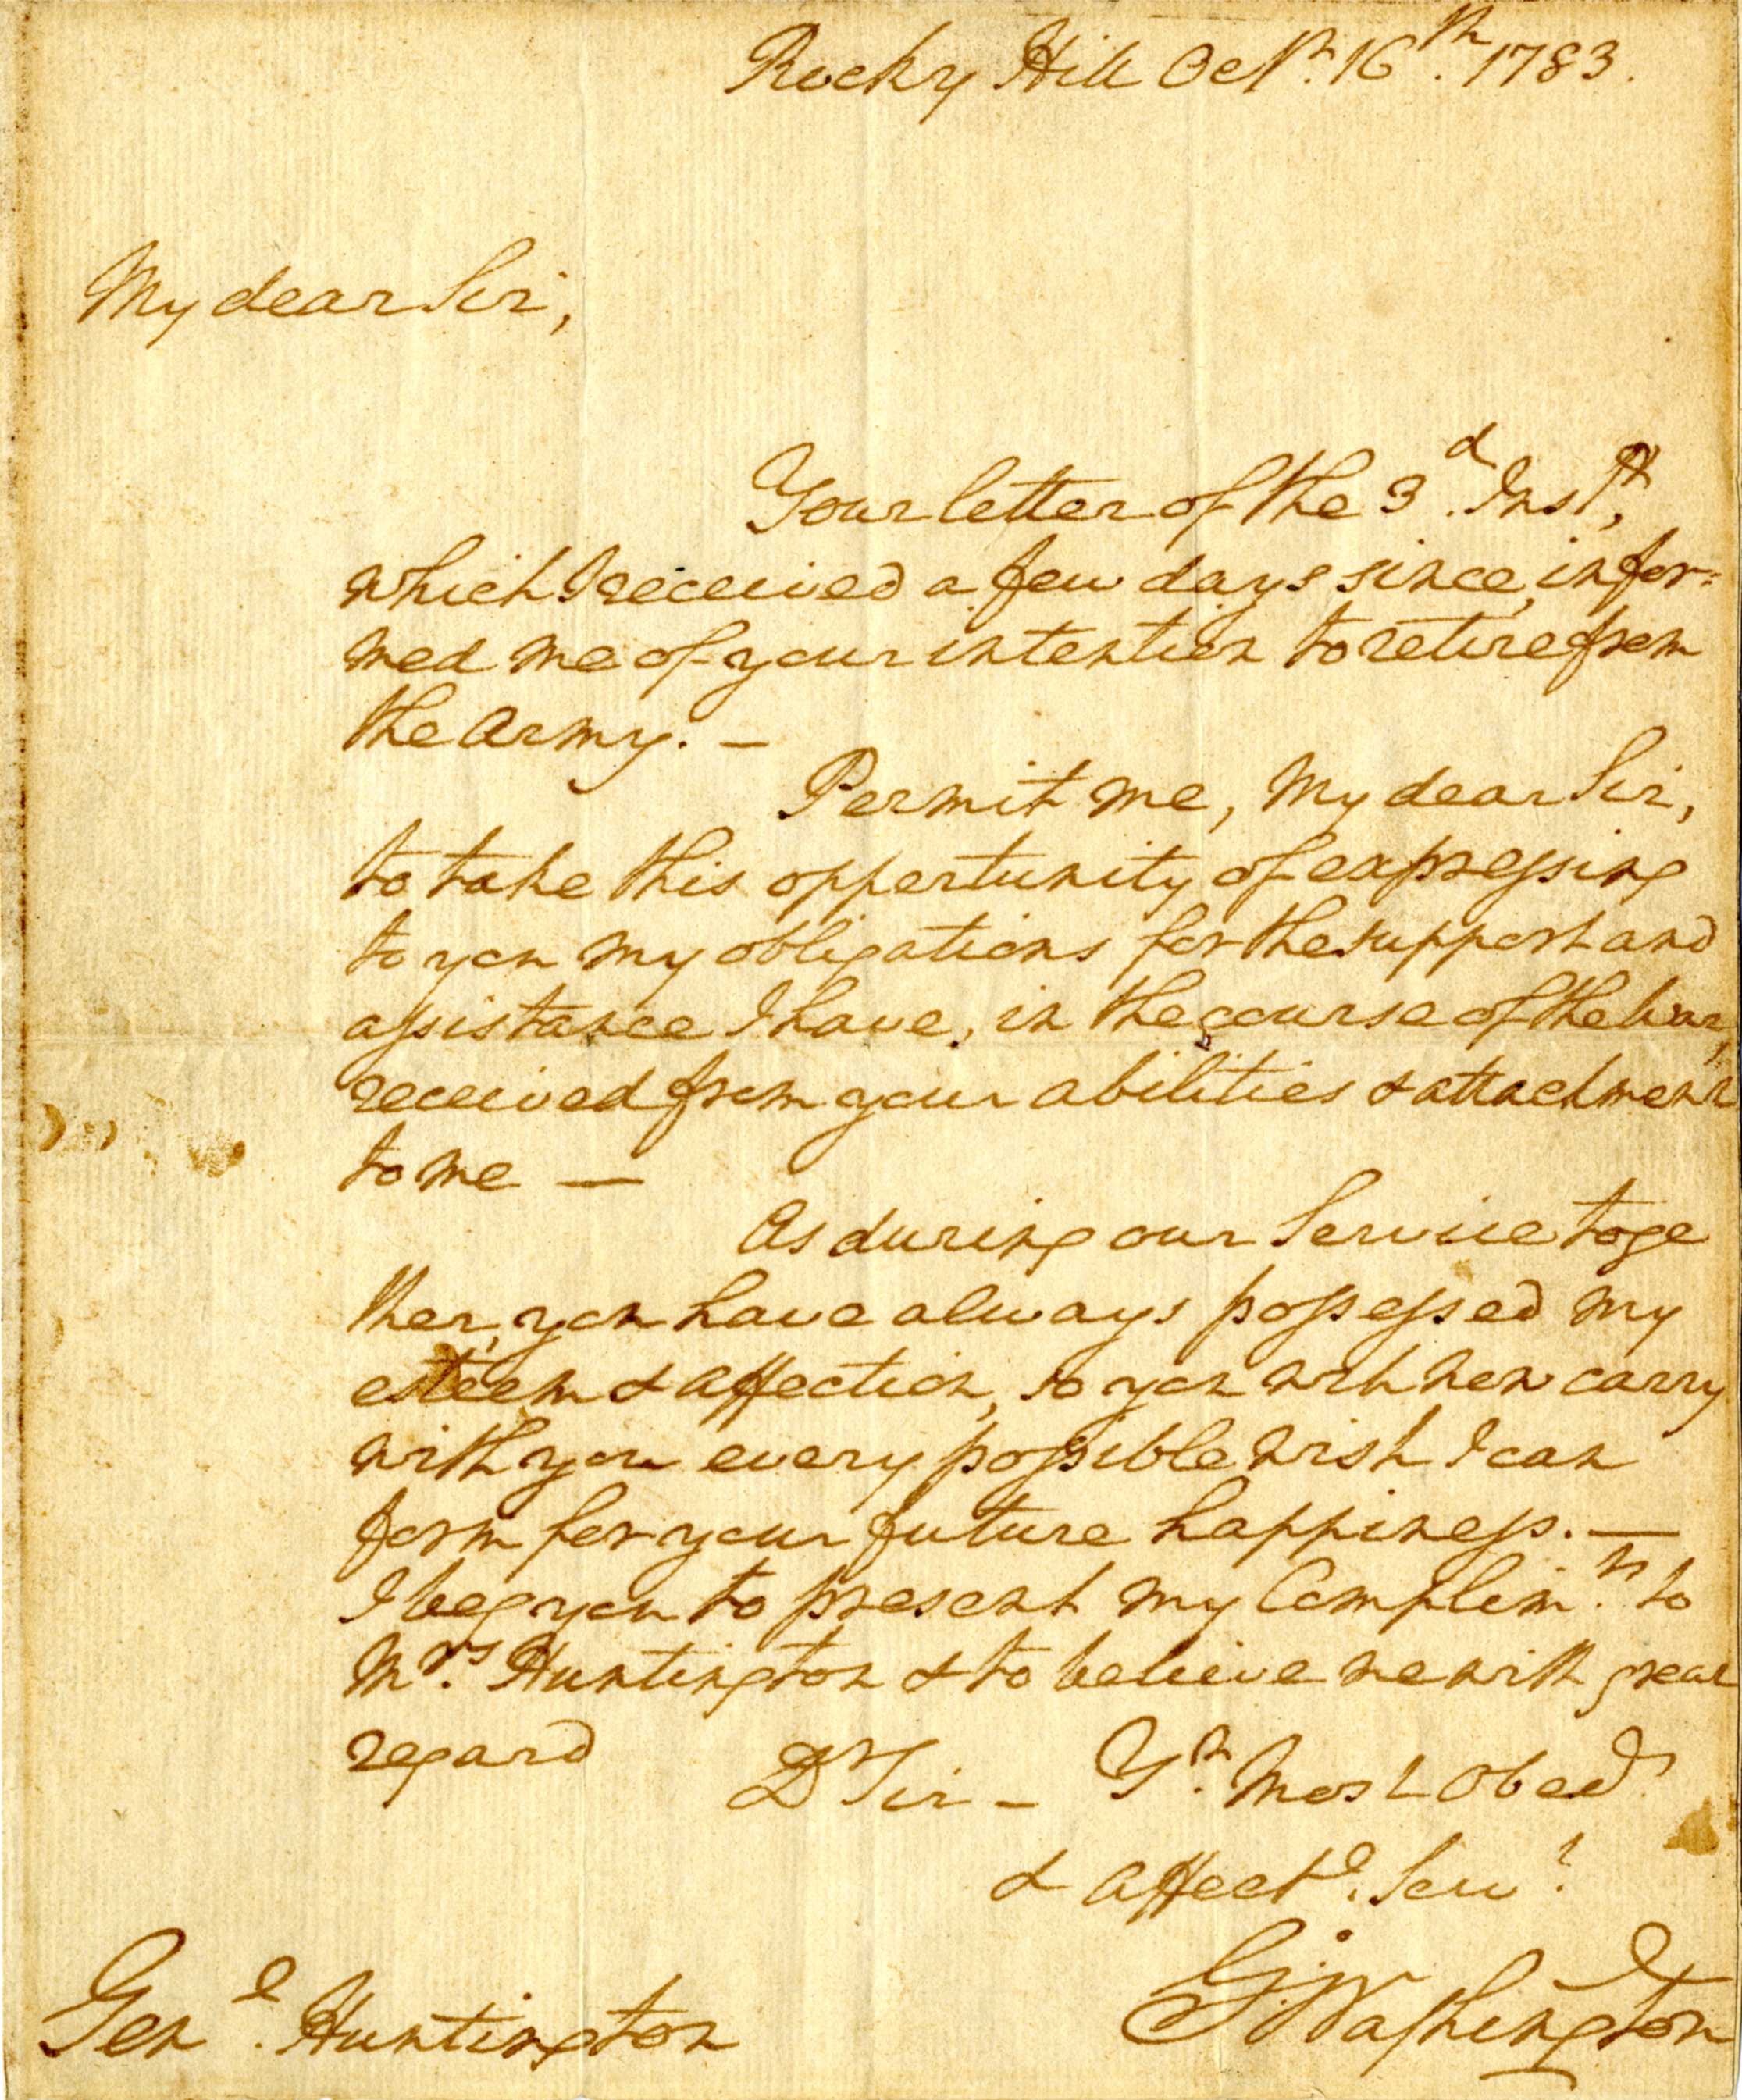 Rocky Hill Octr. 16th. 1783.
My dear Sir,
Your letter of the 3d. Instt,
which I received a few days since, infor=
med me of your intention to retire from
the Army. —
Permit me, My dear Sir,
to take this oppertunity of expressing
to you my obligations for the support and
assistance I have, in the course of the War,
received from your abilities & attachment
to me —
As during our Service toge
ther, you have always possessed my
esteem & affection, so you will now carry
with you every possible wish I can
form for your future happiness. —
I beg you to present my Complimts. to
Mrs. Huntington & to believe me with great
regard
Dr Sir - Yr. Most Obedt
& Affecte. Servt.
Go: Washington
Genl. Huntington